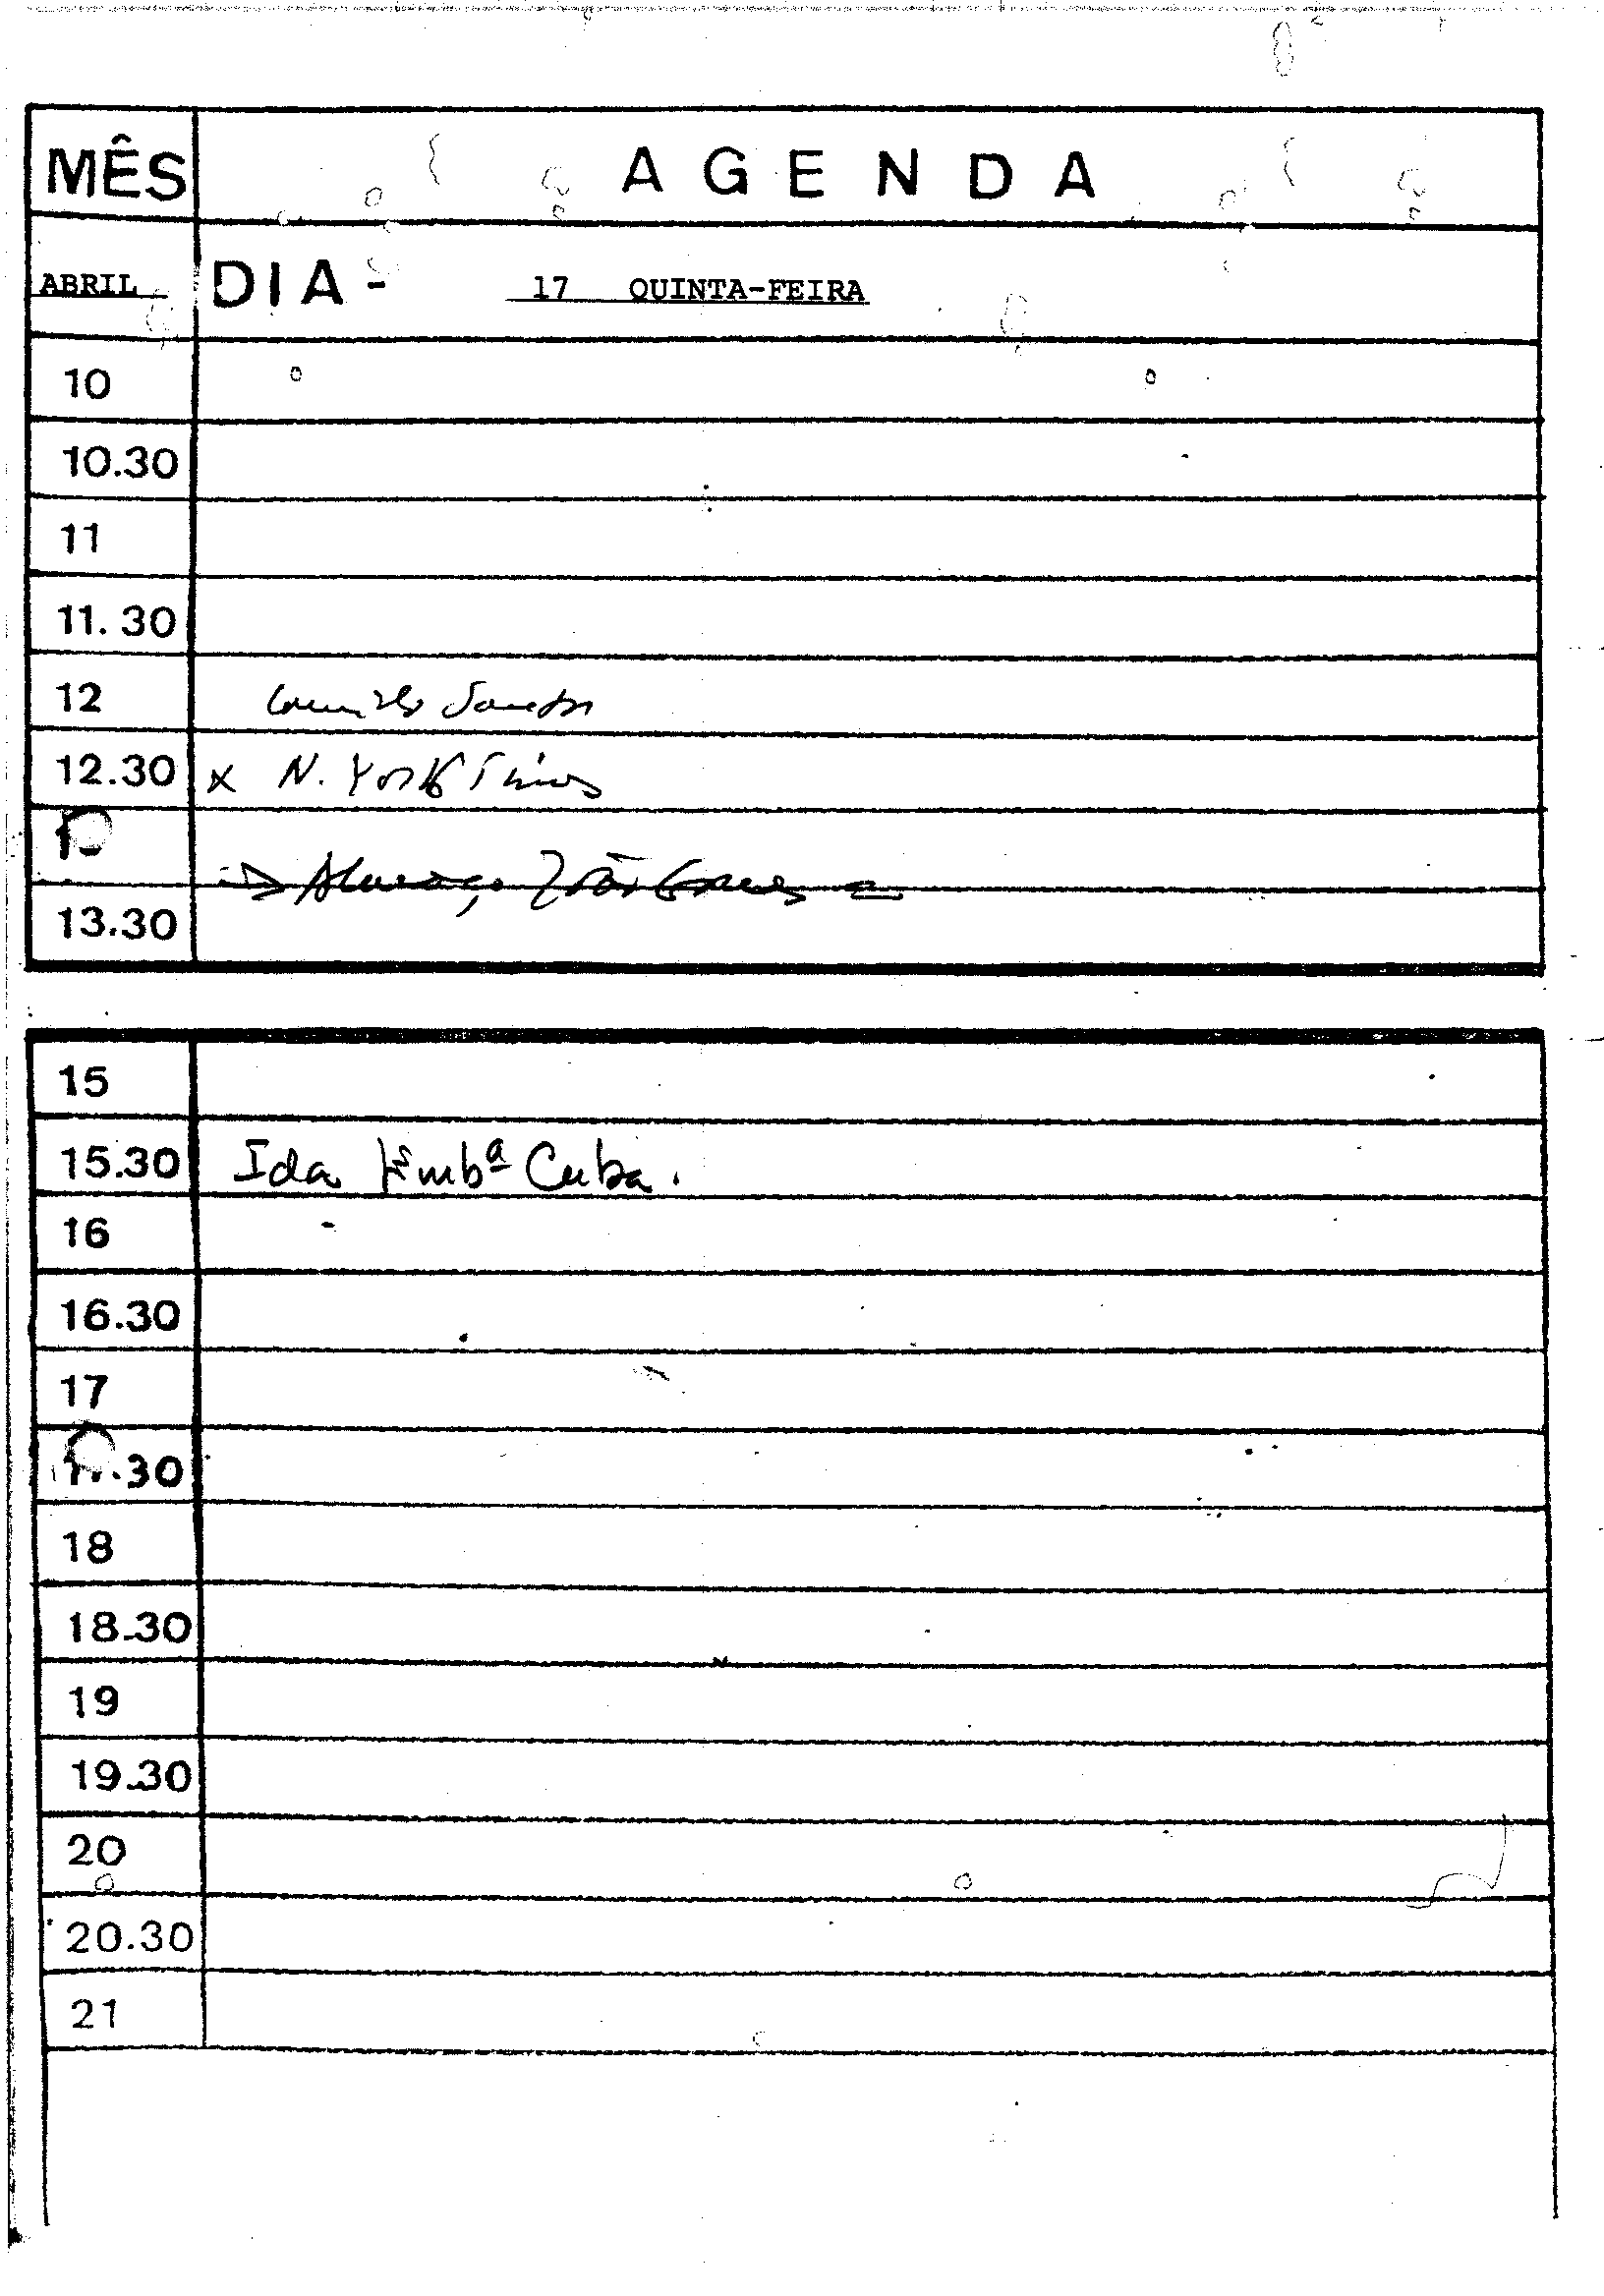 MÊS AGENDA
ABRIL DIA - 17 QUINTA-FEIRA
10
10.30
11
11.30
12
12.30 x N. York Times
13.30
15
15.30 Ida Embª Cuba.
16
16.30
17
.30
18
18.30
19
19.30
20
20.30
21